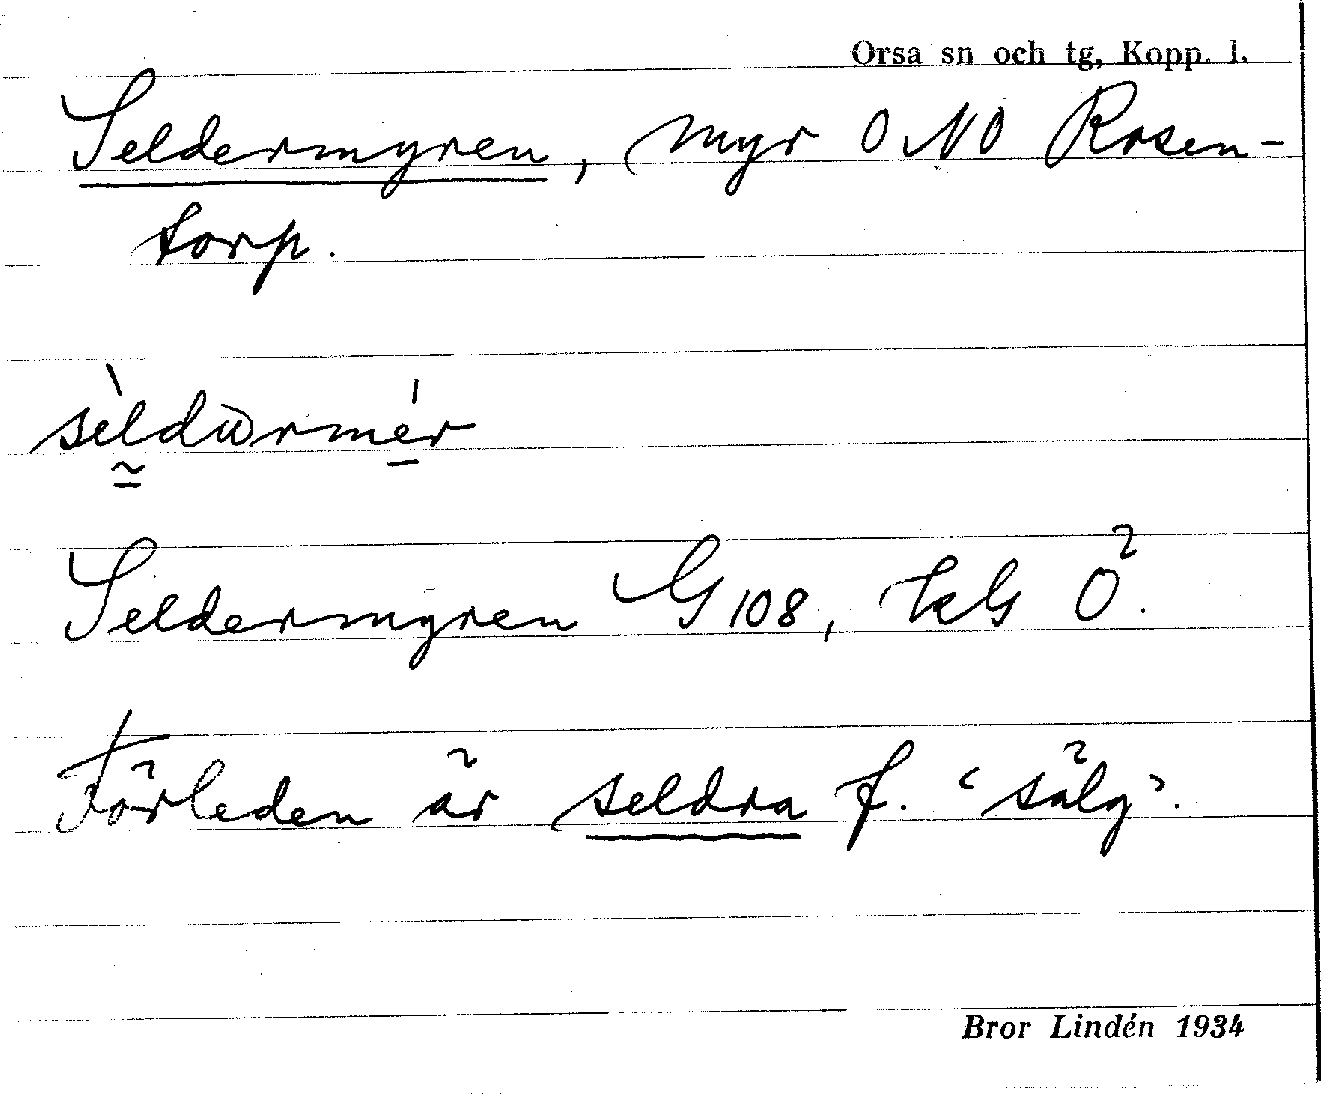 Orsa sn och tg, Kopp. l.
Seldermyren, myr ONO Rosen-
torp.
sèldωrmér
Seldermyren G 108, kG Ö.
Förleden är seldra f. "sälg".
Bror Lindén 1934